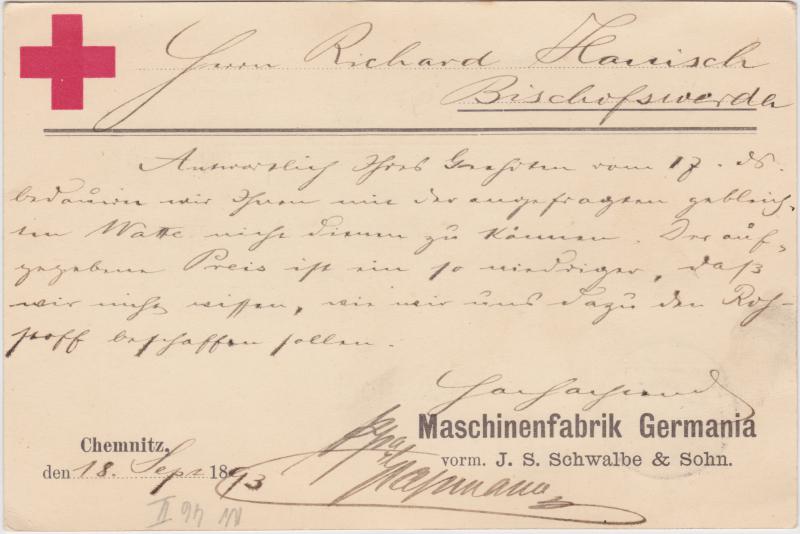 Herrn Richard Hanisch
Bischofswerda
Antwortlich Ihres Geehrten vom 17. ds.
bedauern wir Ihnen mit der angefragten gebleich-
ten Watte nicht dienen zu können. Der auf-
gegebene Preis ist ein so niedriger, daß
wir nicht wissen, wie wir uns dazu den Roh-
stoff beschaffen sollen.
Hochachtend
Maschinenfabrik Germania
vorm. J. S. Schwalbe & Sohn.
Chemnitz,
den 18. Sept 1893